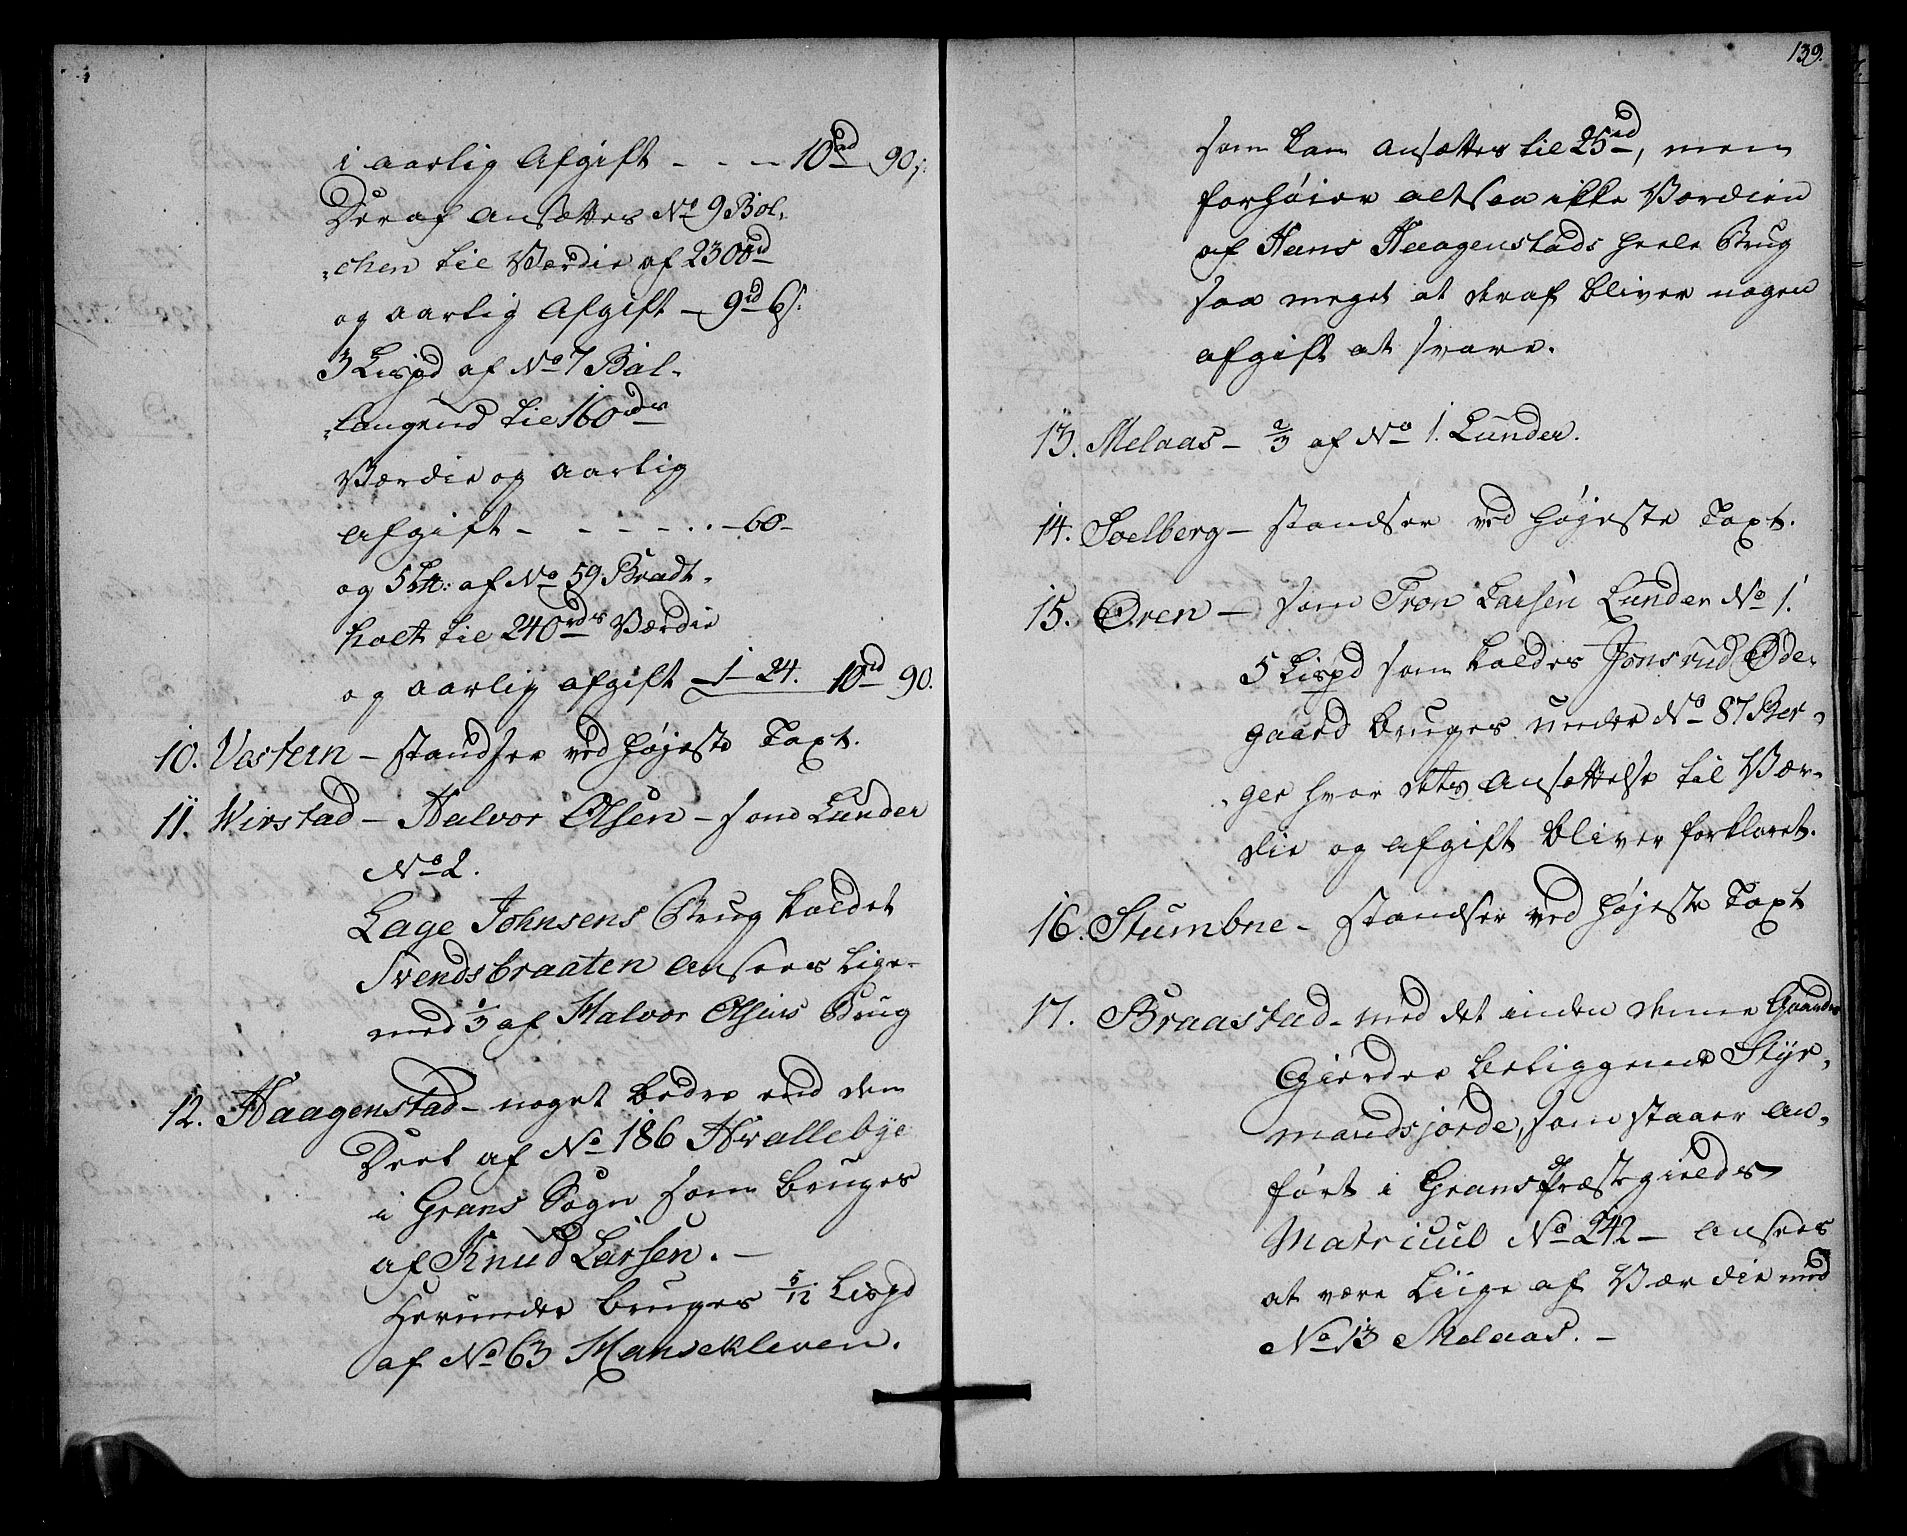 i aarlig Afgift - - - 10rd 90s:
Deraf ansættes No 9 Bøl„
„chen til Værdie af 2300rd
og aarlig Afgift - 9rd 6s:
3 Lispd af No 7 Bal„
„langrud til 160rds
Værdie og aarlig
Afgift - - - - . . - 60 -
og 5 L℔: af No 59 Bradt„
holt til 240rds Værdie
og aarlig afgift - 1 - 24. 10rd 90.
10. Vestern - standser ved højeste Taxt.
11. Wirstad - Halvor Olsen - som Lunder
No 2.
Lage Johnsens Brug kaldet
Svendsbraaten ansees lige
med 1/3 af Halvor Olsens Brug
12. Haagenstad - noget bedre end den
Deel af No 186 Hvallebye
i Grans Sogn som bruges
af Knud Larsen. -
Herunder bruges 5/12 Lispd
af No 63 Hansekleven.
139.
som kan ansættes til 25rd, men
forhøier altsaa ikke Værdien
af Hans Haagenstads heele Brug
saa meget at deraf bliver nogen
afgift at svare.
13. Melaas - 2/3 af No 1. Lunder.
14. Soelberg - standser ved højeste Taxt.
15. Øren - som Tron Larsen Lunder No 1.
5 Lispd som kaldes Jonsrud Øde„
gaard bruges under No 87 Ber„
„ger hvor dets Ansettelse til Vær„
die og Afgift bliver forklaret.
16. Stumbne - standser ved højeste Taxt
17. Braastad - med det inden denne Gaards
Gierder beliggende Styr„
mandsjorde, som staaer an„
ført i Grans Præstegields
Matricul No 242 - ansees
at være Liige af Værdie med
No 13 Melaas. -